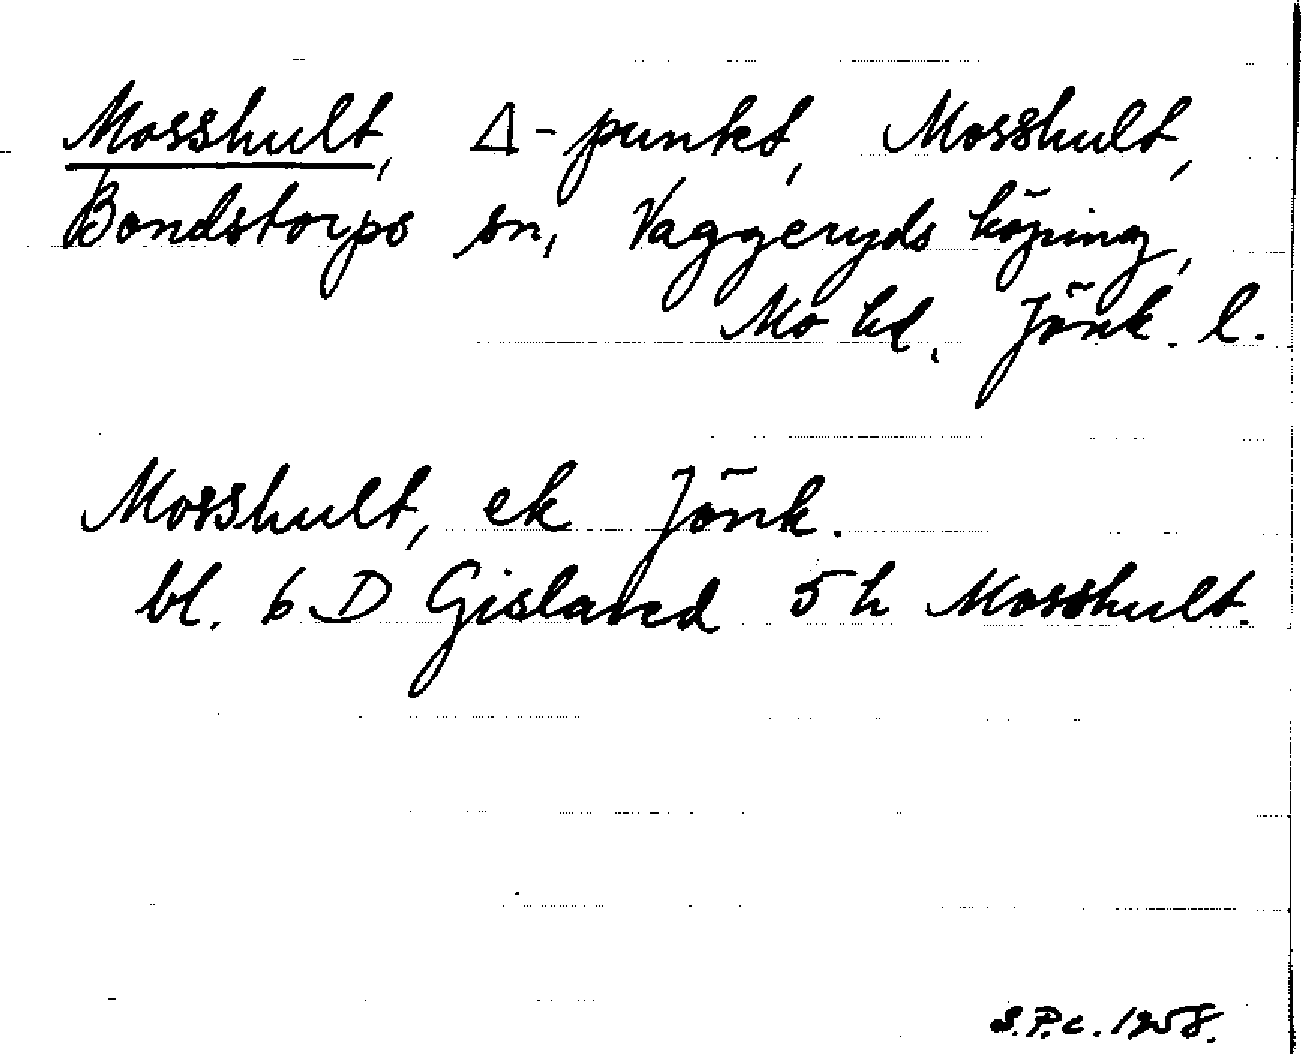 Mosshult, Δ-punkt, Mosshult,
Bondstorps sn, Vaggeryds köping,
Mo hd, Jönk. l.
Mosshult, ek Jönk.
bl. 6 D Gislaved 5 h Mosshult.
S.P.c. 1958.